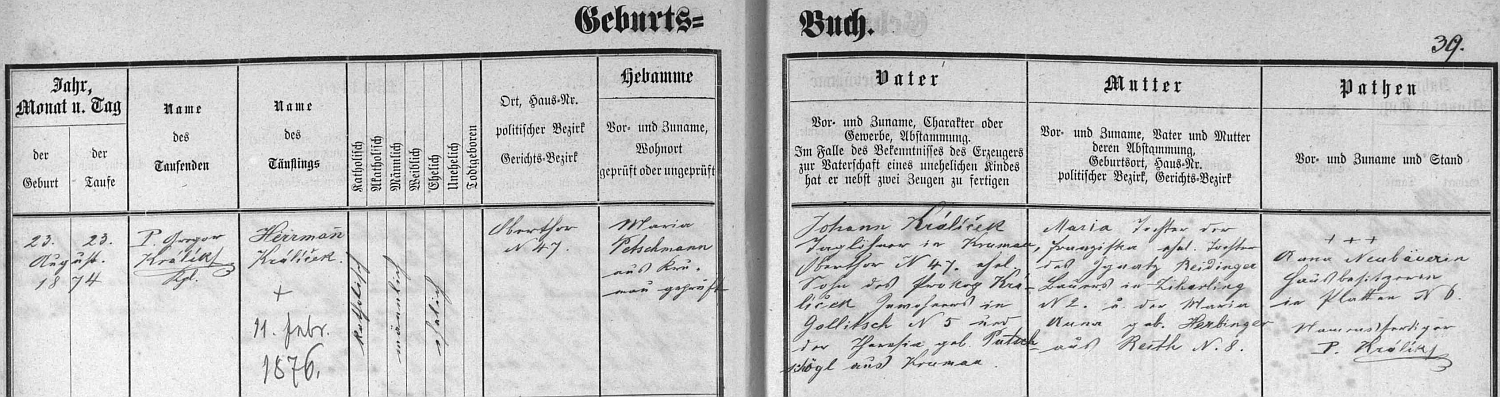 Geburts=
Buch.
39.
Jahr,
Monat u. Tag
der
Geburt
der
Taufe
Name
des
Taufenden
Name
des
Täuflings
Katholisch
Akatholisch
Männlich
Weiblich
Ehelich
Unehelich
Todgeboren
Ort, Haus-Nr.
politischer Bezirk
Gerichts-Bezirk
Hebamme
Vor- und Zuname,
Wohnort
geprüft oder ungeprüft
Vater
Vor- und Zuname, Charakter oder
Gewerbe, Abstammung.
Im Falle des Bekenntnisses des Erzeugers
zur Vaterschaft eines unehelichen Kindes
hat er nebst zwei Zeugen zu fertigen
Mutter
Vor- und Zuname, Vater und Mutter
deren Abstammung,
Geburtsort, Haus-Nr.
politischer Bezirk, Gerichts-Bezirk
Pathen
Vor- und Zuname und Stand
23. 23.
August.
1874
P. Gregor
Králík
Kpl.
Herrman̄
Králíček.
+
11. Febr.
1876.
katholisch
männlich
ehelich
Oberthor
N 47.
Maria
Petschmann
aus Kru-
mau geprüft
Johann Králíček
Taglöhner in Krumau
Oberthor N 47. ehel.
Sohn des Prokop Krá-
líček Inwohners in
Gollitsch N 5 und
der Theresia geb. Putsch
schögl aus Krumau.
Maria Tochter der
Franziska ehel. Tochter
des Ignatz Reidinger
Bauers in Ziherling
N 2. u. der Maria
Anna geb. Herbinger
aus Reith N. 8.
+++
Anna Neubäuerin
Hausbesitzerin
in Platten N 6.
Namensfertiger
P. Králík